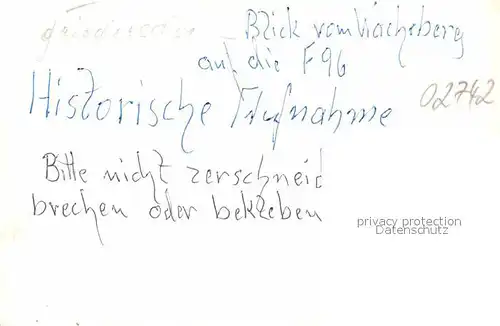 Blick vom Wacheberg
auf die F96
Historische Aufnahme
02742
Bitte nicht zerschneid
brechen oder bekleben
privacy protection
Datenschutz